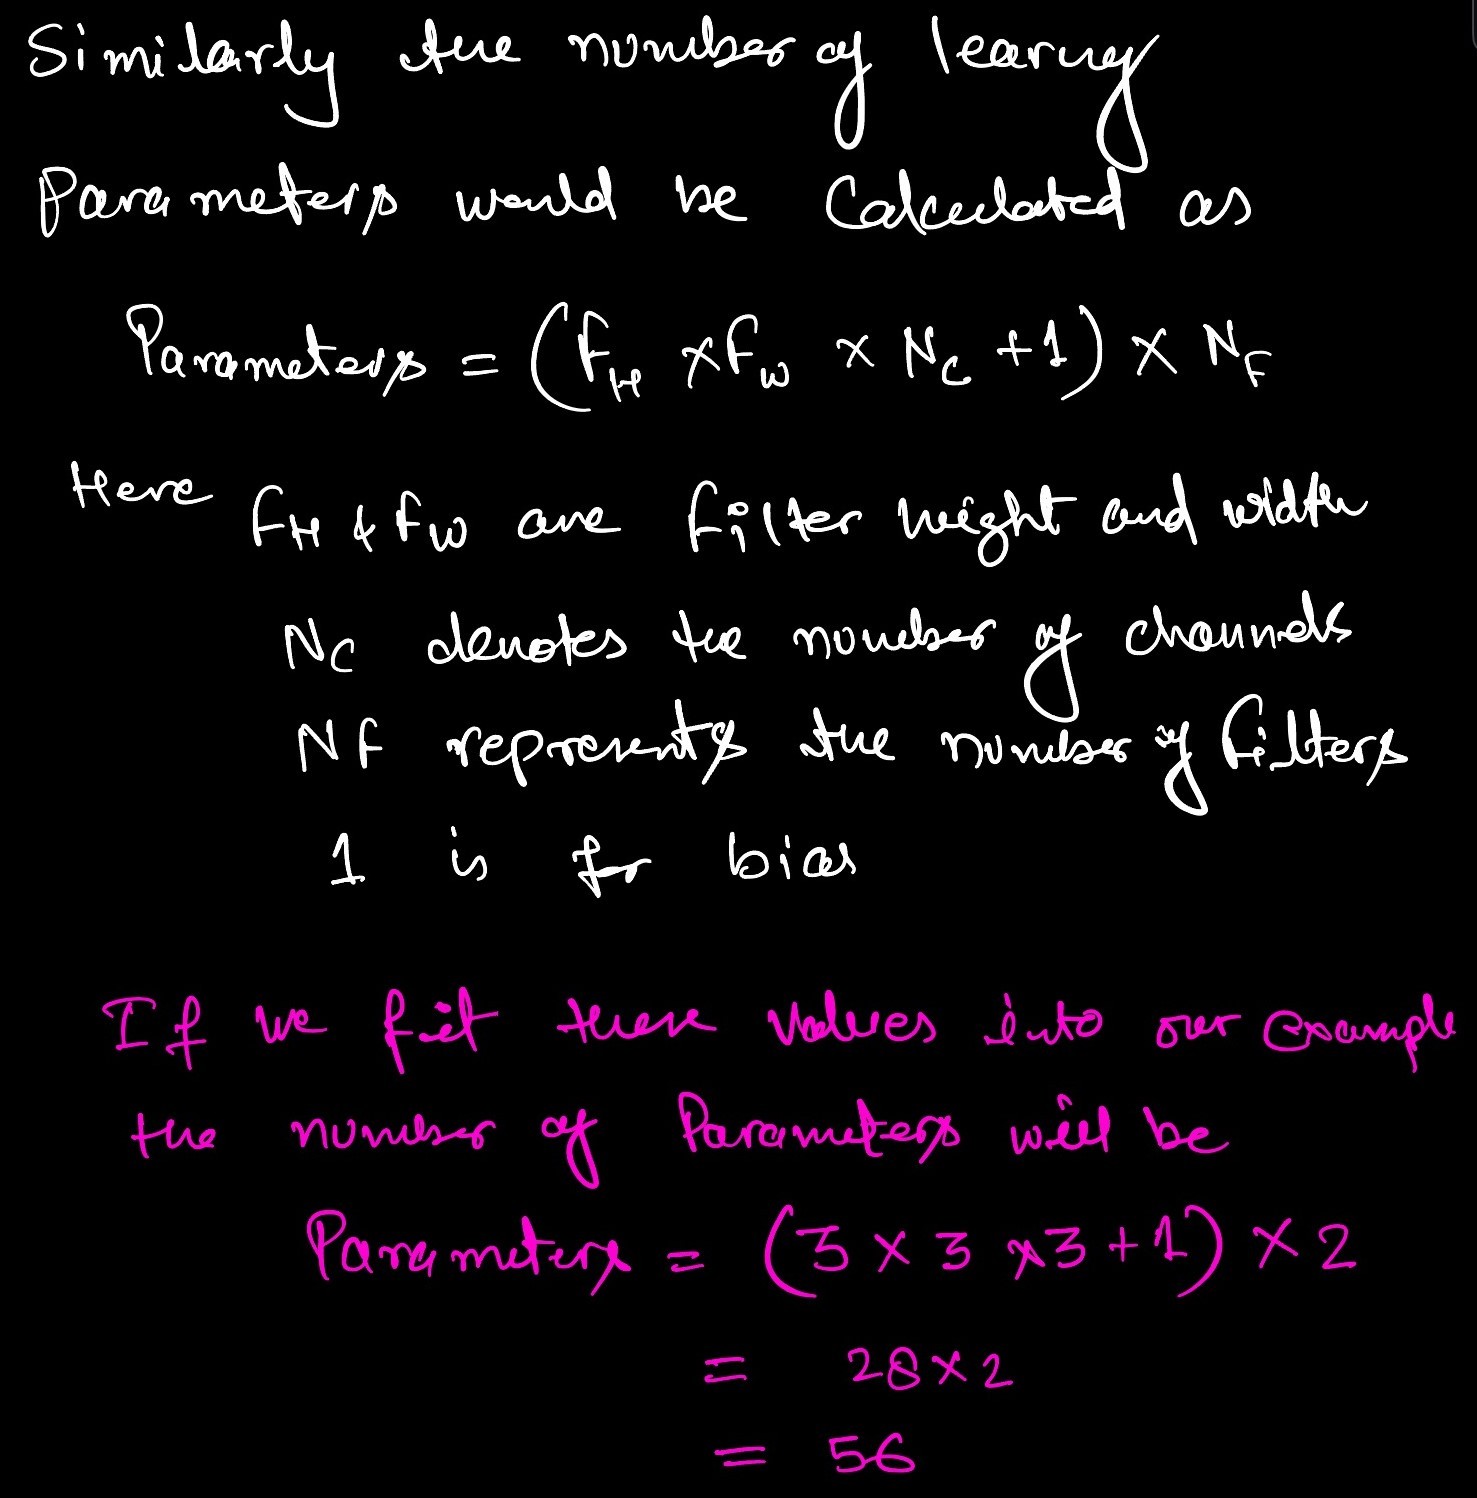 Similarly the number of learning
Parameters would be Calculated as
Parameters = (F_H × F_W × N_C + 1) × N_F
Here F_H & F_W are filter height and width
N_C denotes the number of channels
NF represents the number of filters
1 is for bias
If we fit these values into our example
the number of Parameters will be
Parameters = (3 × 3 × 3 + 1) × 2
= 28 × 2
= 56